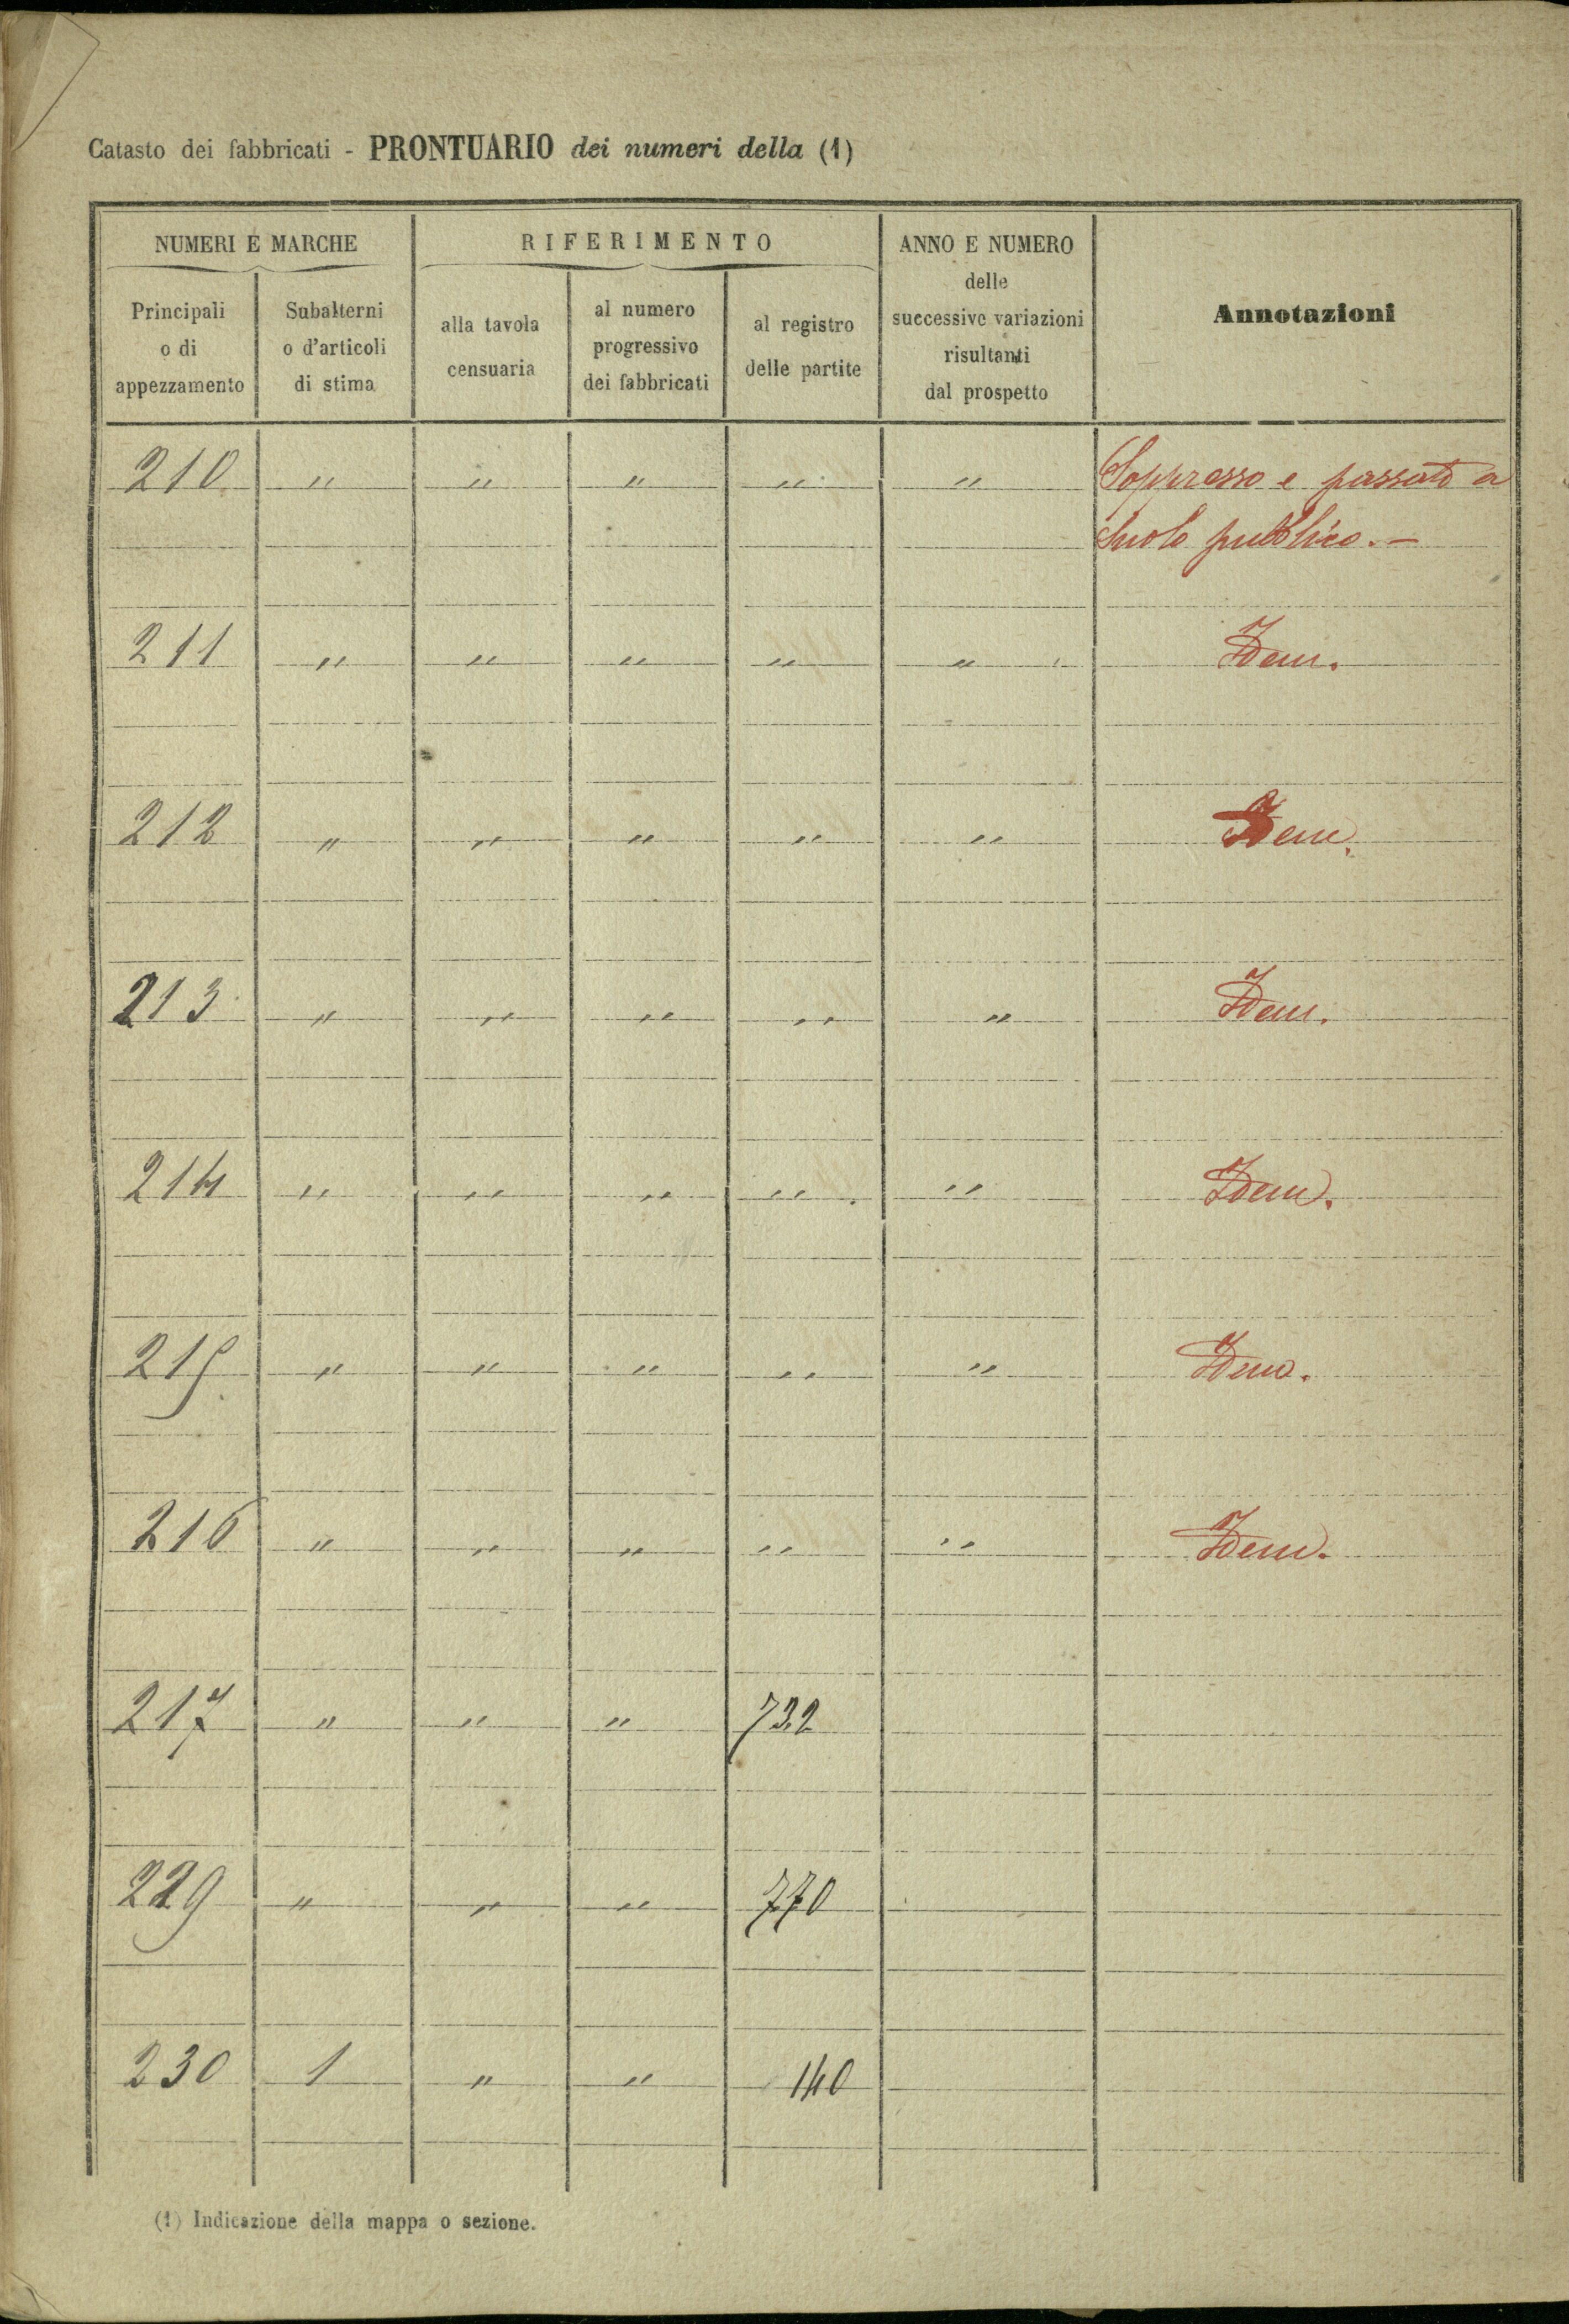 Catasto dei fabbricati - PRONTUARIO dei numeri della (1)
NUMERI E MARCHE
RIFERIMENTO
ANNO E NUMERO
delle
successive variazioni
risultanti
dal prospetto
Annotazioni
Principali
o di
appezzamento
Subalterni
o d'articoli
di stima
alla tavola
censuaria
al numero
progressivo
dei fabbricati
al registro
delle partite
210 " " " " " Soppresso e passato a
suolo pubblico. -
211 " " " " " Idem.
212 " " " " " Idem.
213 " " " " " Idem.
214 " " " " " Idem.
215 " " " " " Idem.
216 " " " " " Idem.
217 " " " 732
229 " " " 770
230 1 " " 140
(1) Indicazione della mappa o sezione.